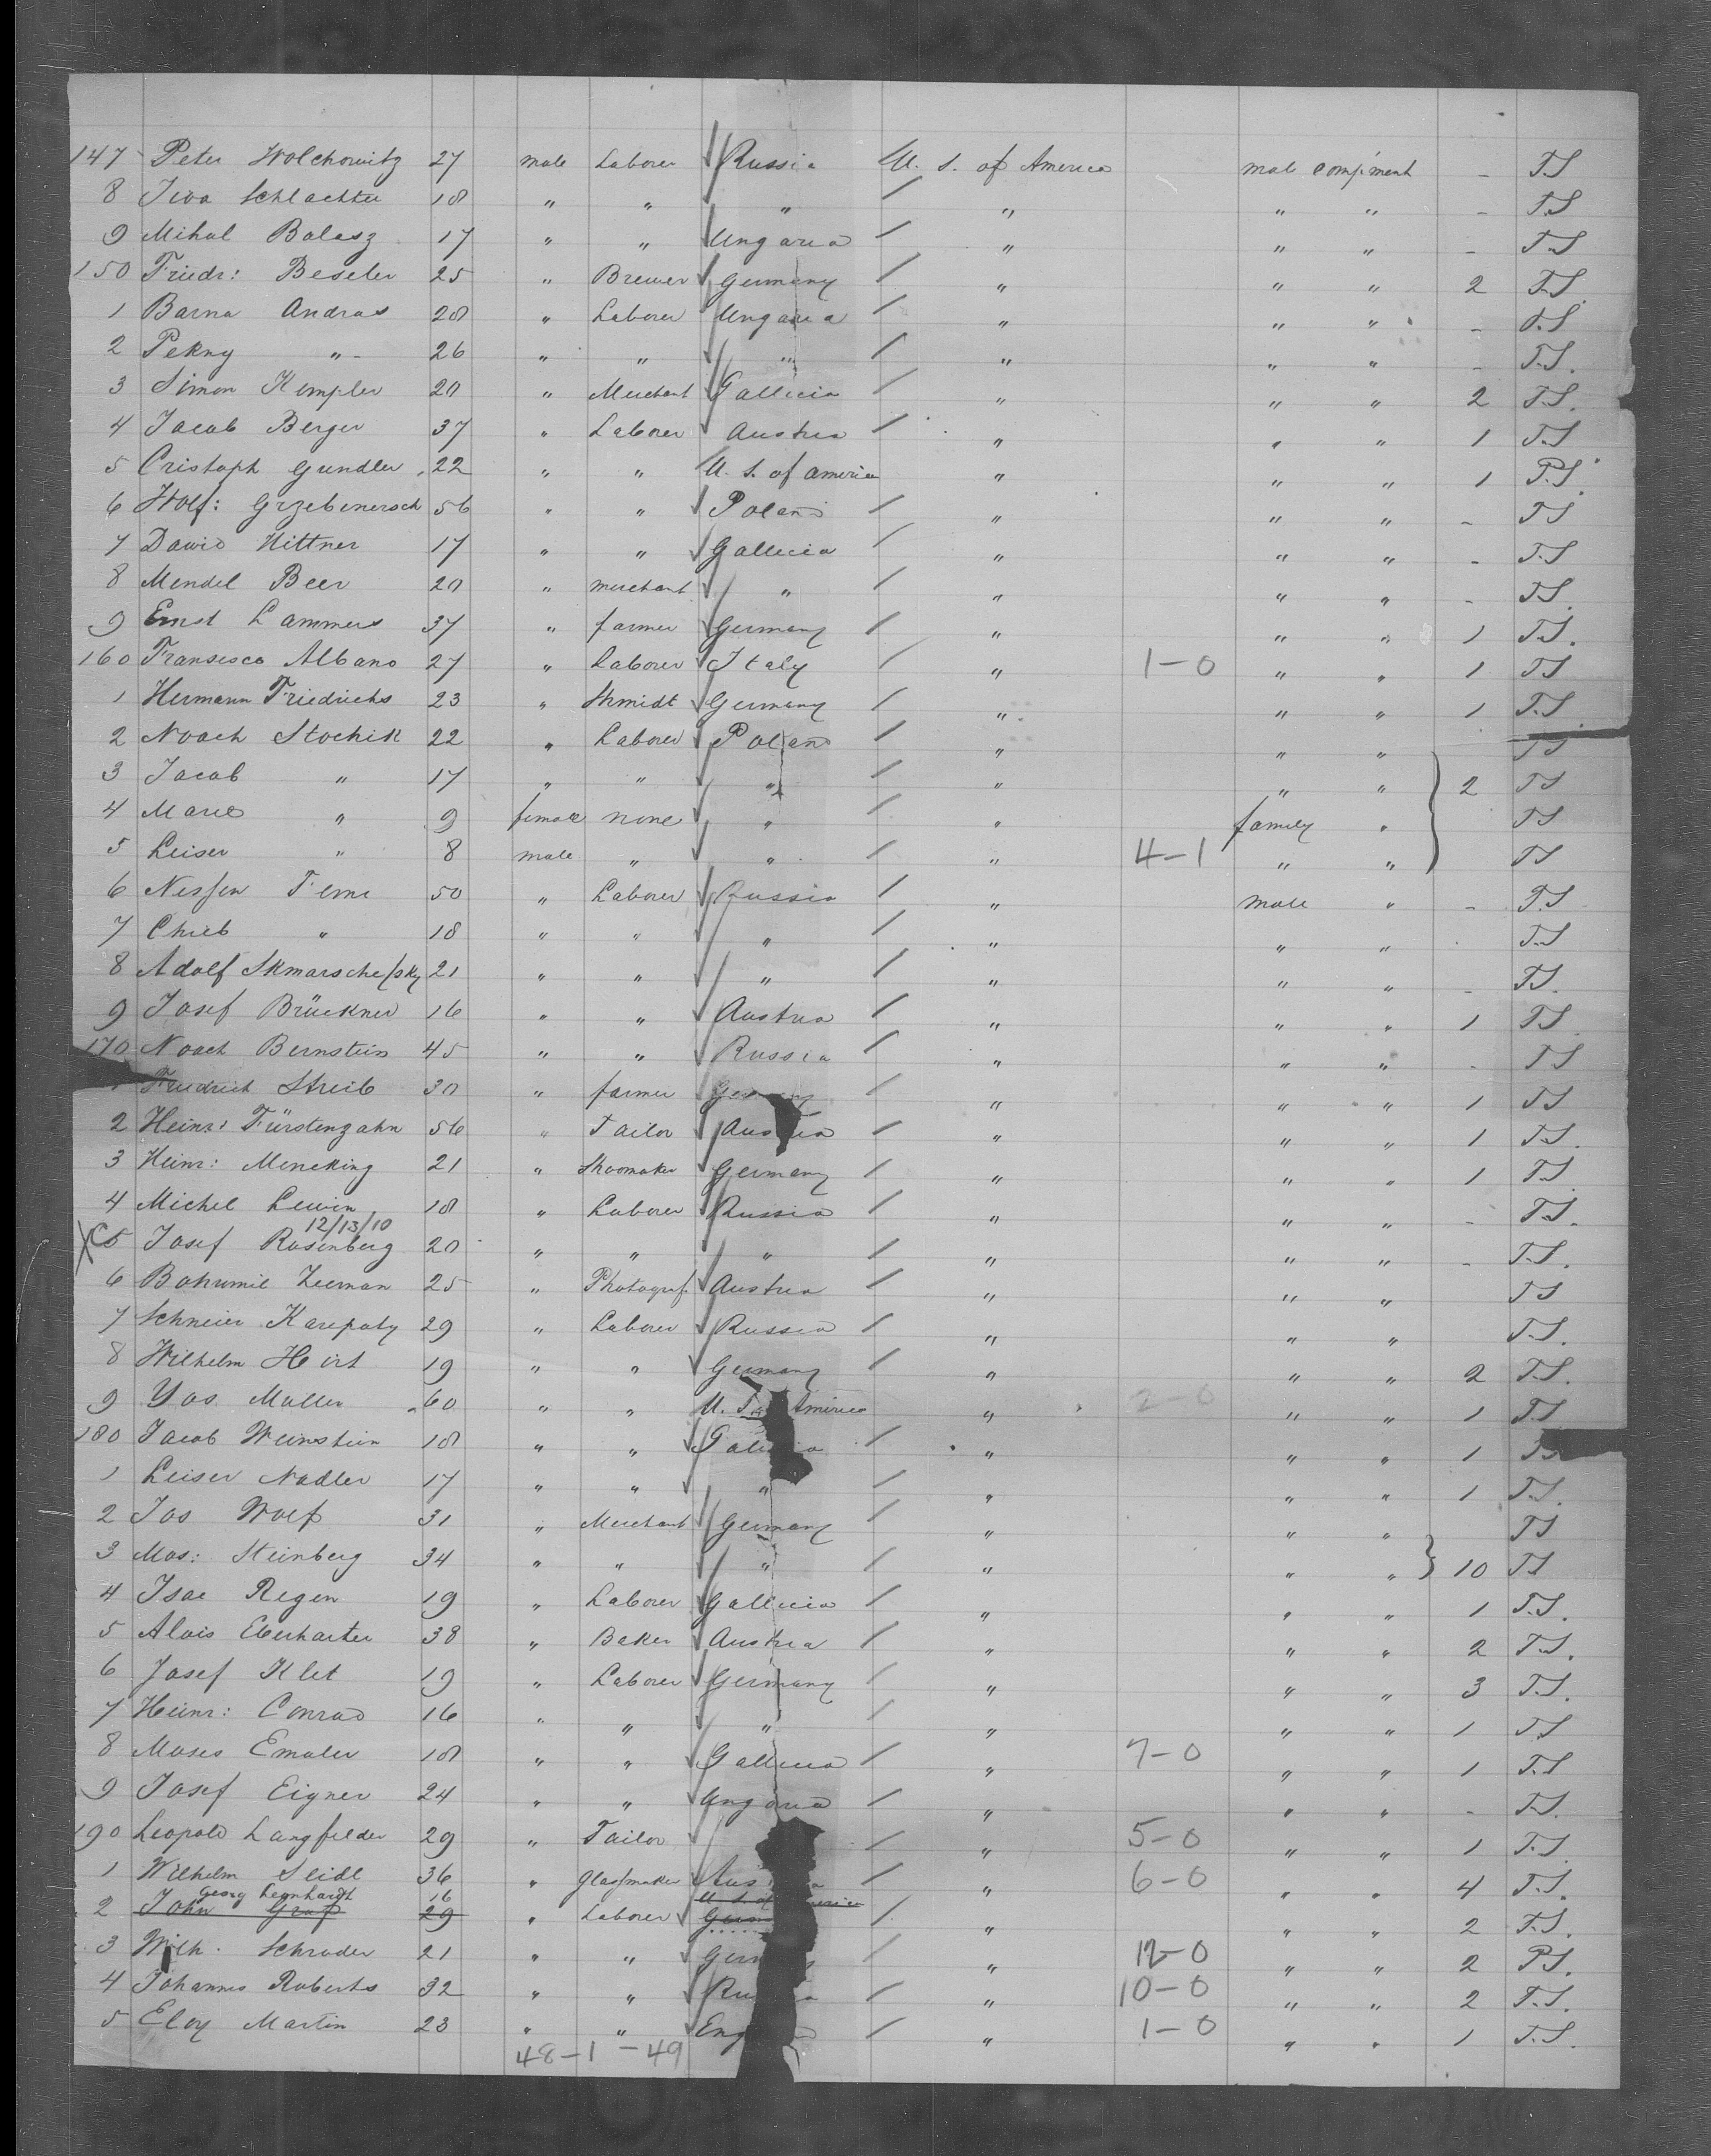 147 Peter Wolchowitz 27 male Laborer Russia U. S. of America male compment - T.S
8 Iwa Schlachter 18 " " " " " " - T.S
9 Mihal Balasz 17 " " Ungaria " " " - T.S
150 Friedr: Beseler 25 " Brewer Germany " " " 2 T.S.
1 Barna Andras 28 " Laborer Ungaria " " " - T.S
2 Pekny " 26 " " " " " " - T.S.
3 Simon Kempler 20 " Merchant Gallicia " " " 2 T.S.
4 Jacob Berger 37 " Laborer Austria " " " 1 T.S
5 Cristoph Gundler 22 " " U. S. of America " " " 1 P.S.
6 Wolf: Grzebenersch 56 " " Poland " " " - T.S
7 Dawid Hittner 17 " " Gallicia " " " - T.S
8 Mendel Beer 20 " merchant " " " " - T.S.
9 Ernst Lammers 37 " farmer Germany " " " 1 T.S.
160 Fransesco Albano 27 " Laborer Italy " 1-0 " " 1 T.S
1 Hermann Friedrichs 23 " Shmidt Germany " " " 1 T.S.
2 Noach Stochik 22 " Laborer Poland " " " T.S
3 Jacob " 17 " " " " " " } 2 T.S
4 Marie " 9 female none " " family " T.S
5 Leiser " 8 male " " " 4-1 " " T.S
6 Nessen 50 " Laborer Russia " male " - T.S
7 " 18 " " " " " " - T.S
8 Adolf 21 " " " " " " - T.S.
9 Josef Brückner 16 " " Austria " " " 1 T.S.
170 Noach Bernstein 45 " " Russia " " " - T.S
Friedrich Streib 30 " farmer Germany " " " 1 T.S
2 Heinr: Fürstenzahn 56 " Tailor Austria " " " 1 T.S.
3 Heinr: Meneking 21 " Shoomaker Germany " " " 1 T.S.
4 Michel Lewin 18 " Laborer Russia " " " - T.S.
12/13/10
X 5 Josef Rosenberg 20 " " " " " " - T.S.
6 Bohumil Zeeman 25 " Photograf. Austria " " " T.S
7 Schneier Karepaty 29 " Laborer Russia " " " T.S.
8 Wilhelm Hirt 19 " " Germany " " " 2 T.S.
9 Yos Muller 60 " " U. S. America " 2-0 " " 1 T.S
180 Jacob Weinstein 18 " " Galicia " " " 1 T.S
1 Leiser Nadler 17 " " " " " " 1 T.S.
2 Jos Wolf 31 " Merchant Germany " " " T.S
3 Mos: Steinberg 34 " " " " " " } 10 T.S
4 Isac Regen 19 " Laborer Gallicia " " " 1 T.S.
5 Alois Eberharter 38 " Baker Austria " " " 2 T.S.
6 Josef Klet 19 " Laborer Germany " " " 3 T.S.
7 Heinr: Conrad 16 " " " " " " 1 T.S
8 Moses Emaler 18 " " Gallicia " 7-0 " " 1 T.S
9 Josef Eigner 24 " " Ungaria " " " - T.S.
190 Leopold Langfelder 29 " Tailor " 5-0 " " 1 T.S.
1 Wilhelm Seidl 36 " Glassmaker Aus a " 6-0 " " 4 T.S.
Georg Leonhardt 16 U. S. of America
2 John Graf 29 " Laborer " " " 2 T.S.
3 Wilh. Schroder 21 " " Ger " 12-0 " " 2 P.S.
4 Johannes Roberts 32 " " Ru a " 10-0 " " 2 T.S.
5 Eloy Martin 23 " " Eng " 1-0 " " 1 T.S.
48-1-49